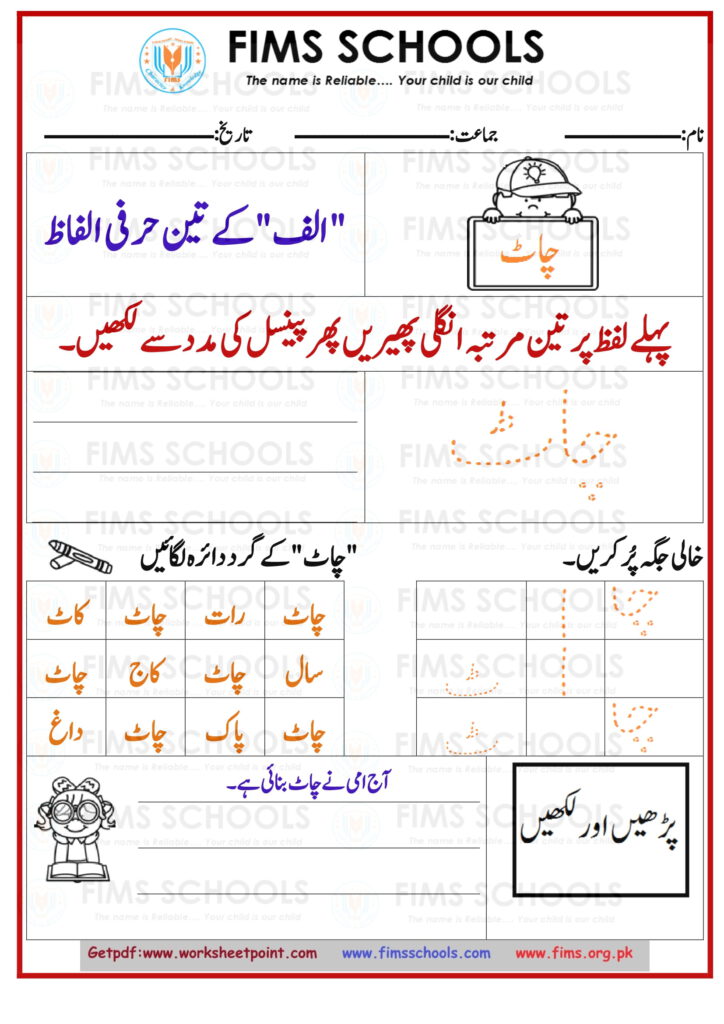 FIMS SCHOOLS
The name is Reliable.... Your child is our child
نام: جماعت: تاریخ:
چاٹ
"الف" کے تین حرفی الفاظ
پہلے لفظ پر تین مرتبہ انگلی پھیریں پھر پینسل کی مدد سے لکھیں۔
چاٹ
خالی جگہ پُر کریں۔
چ ا
ا ٹ
چ ٹ
"چاٹ" کے گرد دائرہ لگائیں
چاٹ رات چاٹ کاٹ
سال چاٹ کاج چاٹ
چاٹ پاک چاٹ داغ
پڑھیں اور لکھیں
آج امی نے چاٹ بنائی ہے۔
Getpdf:www.worksheetpoint.com www.fimsschools.com www.fims.org.pk